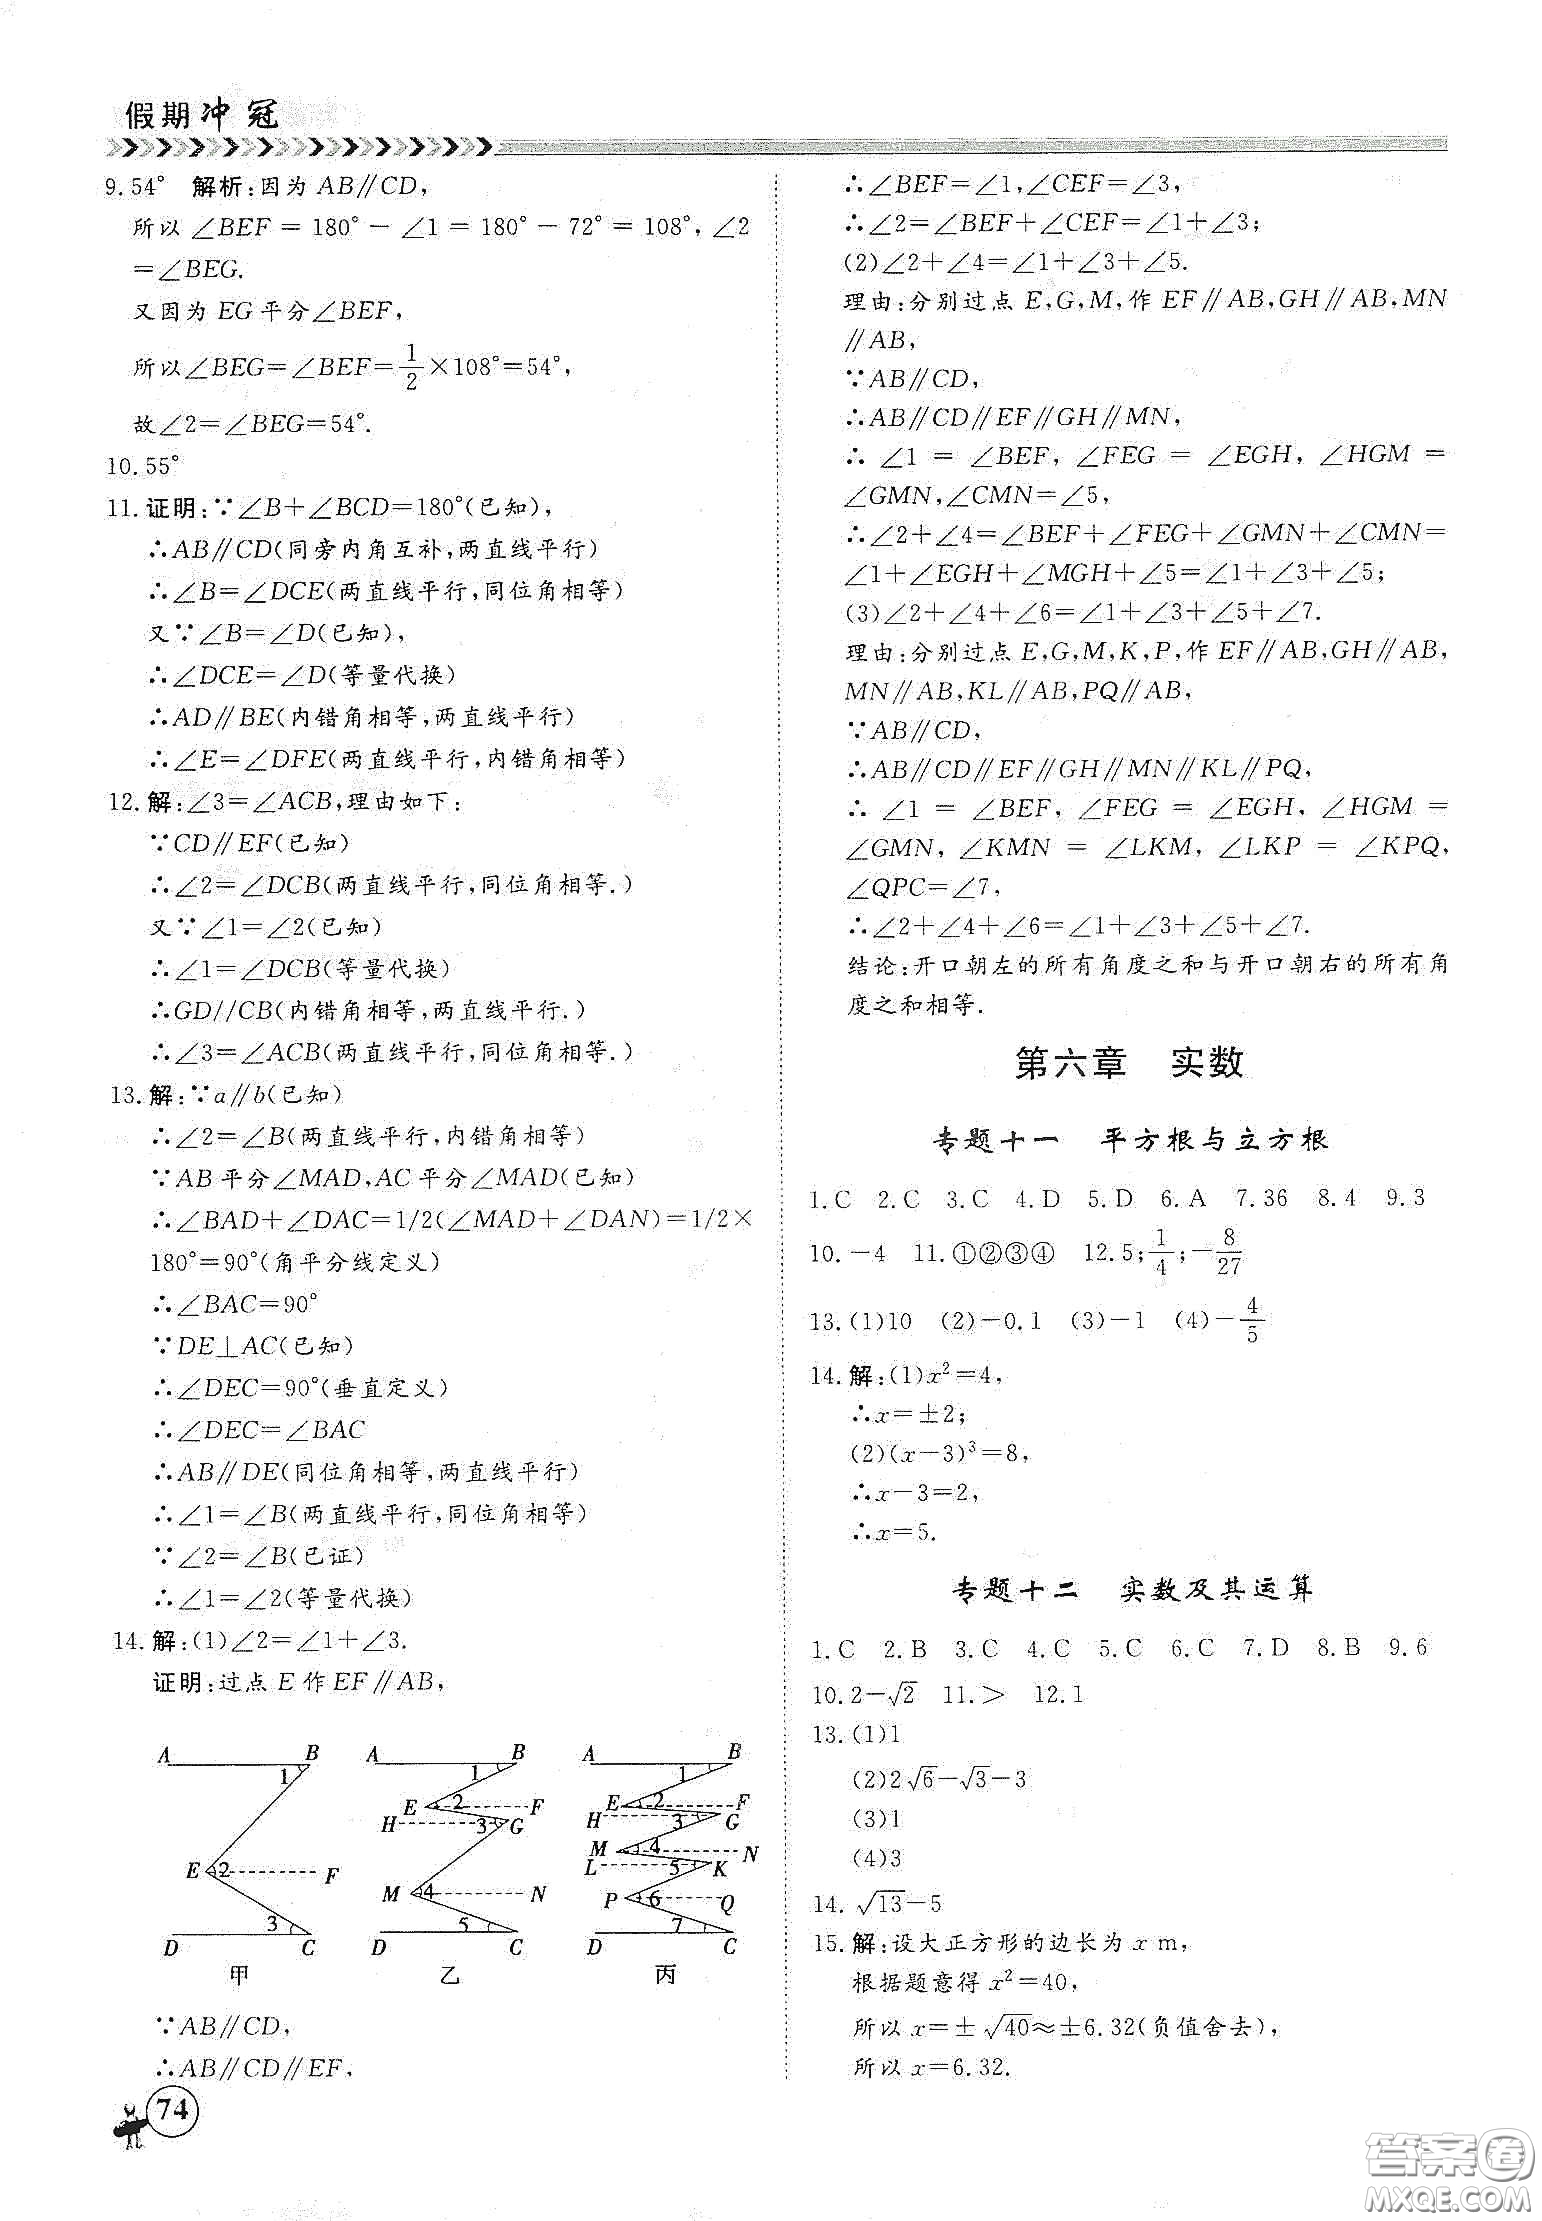 假期冲冠
9.54° 解析:因为 AB∥CD,
所以 ∠BEF = 180° − ∠1 = 180° − 72° = 108°, ∠2
=∠BEG.
又因为 EG 平分∠BEF,
所以∠BEG=∠BEF=1/2×108°=54°,
故∠2=∠BEG=54°.
10.55°
11.证明:∵∠B+∠BCD=180°(已知),
∴AB∥CD(同旁内角互补,两直线平行)
∴∠B=∠DCE(两直线平行,同位角相等)
又∵∠B=∠D(已知),
∴∠DCE=∠D(等量代换)
∴AD∥BE(内错角相等,两直线平行)
∴∠E=∠DFE(两直线平行,内错角相等)
12.解:∠3=∠ACB,理由如下:
∵CD∥EF(已知)
∴∠2=∠DCB(两直线平行,同位角相等.)
又∵∠1=∠2(已知)
∴∠1=∠DCB(等量代换)
∴GD//CB(内错角相等,两直线平行.)
∴∠3=∠ACB(两直线平行,同位角相等.)
13.解:∵a∥b(已知)
∴∠2=∠B(两直线平行,内错角相等)
∵AB 平分∠MAD,AC 平分∠MAD(已知)
∴∠BAD+∠DAC=1/2(∠MAD+∠DAN)=1/2×
180°=90°(角平分线定义)
∴∠BAC=90°
∵DE⊥AC(已知)
∴∠DEC=90°(垂直定义)
∴∠DEC=∠BAC
∴AB∥DE(同位角相等,两直线平行)
∴∠1=∠B(两直线平行,同位角相等)
∵∠2=∠B(已证)
∴∠1=∠2(等量代换)
14.解:(1)∠2=∠1+∠3.
证明:过点 E 作 EF∥AB,
A B 1 E 2 F 3 D C 甲
A B 1 E 2 F H 3 G M 4 N 5 D C 乙
A B 1 E 2 F H 3 G M 4 N L 5 K P 6 Q 7 D C 丙
∵AB∥CD,
∴AB∥CD∥EF,
74
∴∠BEF=∠1,∠CEF=∠3,
∴∠2=∠BEF+∠CEF=∠1+∠3;
(2)∠2+∠4=∠1+∠3+∠5.
理由:分别过点 E,G,M,作 EF∥AB,GH∥AB,MN
∥AB,
∵AB∥CD,
∴AB∥CD∥EF∥GH∥MN,
∴ ∠1 = ∠BEF, ∠FEG = ∠EGH, ∠HGM =
∠GMN,∠CMN=∠5,
∴∠2+∠4=∠BEF+∠FEG+∠GMN+∠CMN=
∠1+∠EGH+∠MGH+∠5=∠1+∠3+∠5;
(3)∠2+∠4+∠6=∠1+∠3+∠5+∠7.
理由:分别过点 E,G,M,K,P,作 EF∥AB,GH∥AB,
MN∥AB,KL∥AB,PQ∥AB,
∵AB∥CD,
∴AB∥CD∥EF∥GH∥MN∥KL∥PQ,
∴ ∠1 = ∠BEF, ∠FEG = ∠EGH, ∠HGM =
∠GMN, ∠KMN = ∠LKM, ∠LKP = ∠KPQ,
∠QPC=∠7,
∴∠2+∠4+∠6=∠1+∠3+∠5+∠7.
结论:开口朝左的所有角度之和与开口朝右的所有角
度之和相等.
第六章 实数
专题十一 平方根与立方根
1.C 2.C 3.C 4.D 5.D 6.A 7.36 8.4 9.3
10.−4 11.①②③④ 12.5;1/4;−8/27
13.(1)10 (2)−0.1 (3)−1 (4)−4/5
14.解:(1)x²=4,
∴x=±2;
(2)(x−3)³=8,
∴x−3=2,
∴x=5.
专题十二 实数及其运算
1.C 2.B 3.C 4.C 5.C 6.C 7.D 8.B 9.6
10.2−√2 11.> 12.1
13.(1)1
(2)2√6−√3−3
(3)1
(4)3
14.√13−5
15.解:设大正方形的边长为 x m,
根据题意得 x²=40,
所以 x=±√40≈±6.32(负值舍去),
所以 x=6.32.
答案圈
MXQE.COM